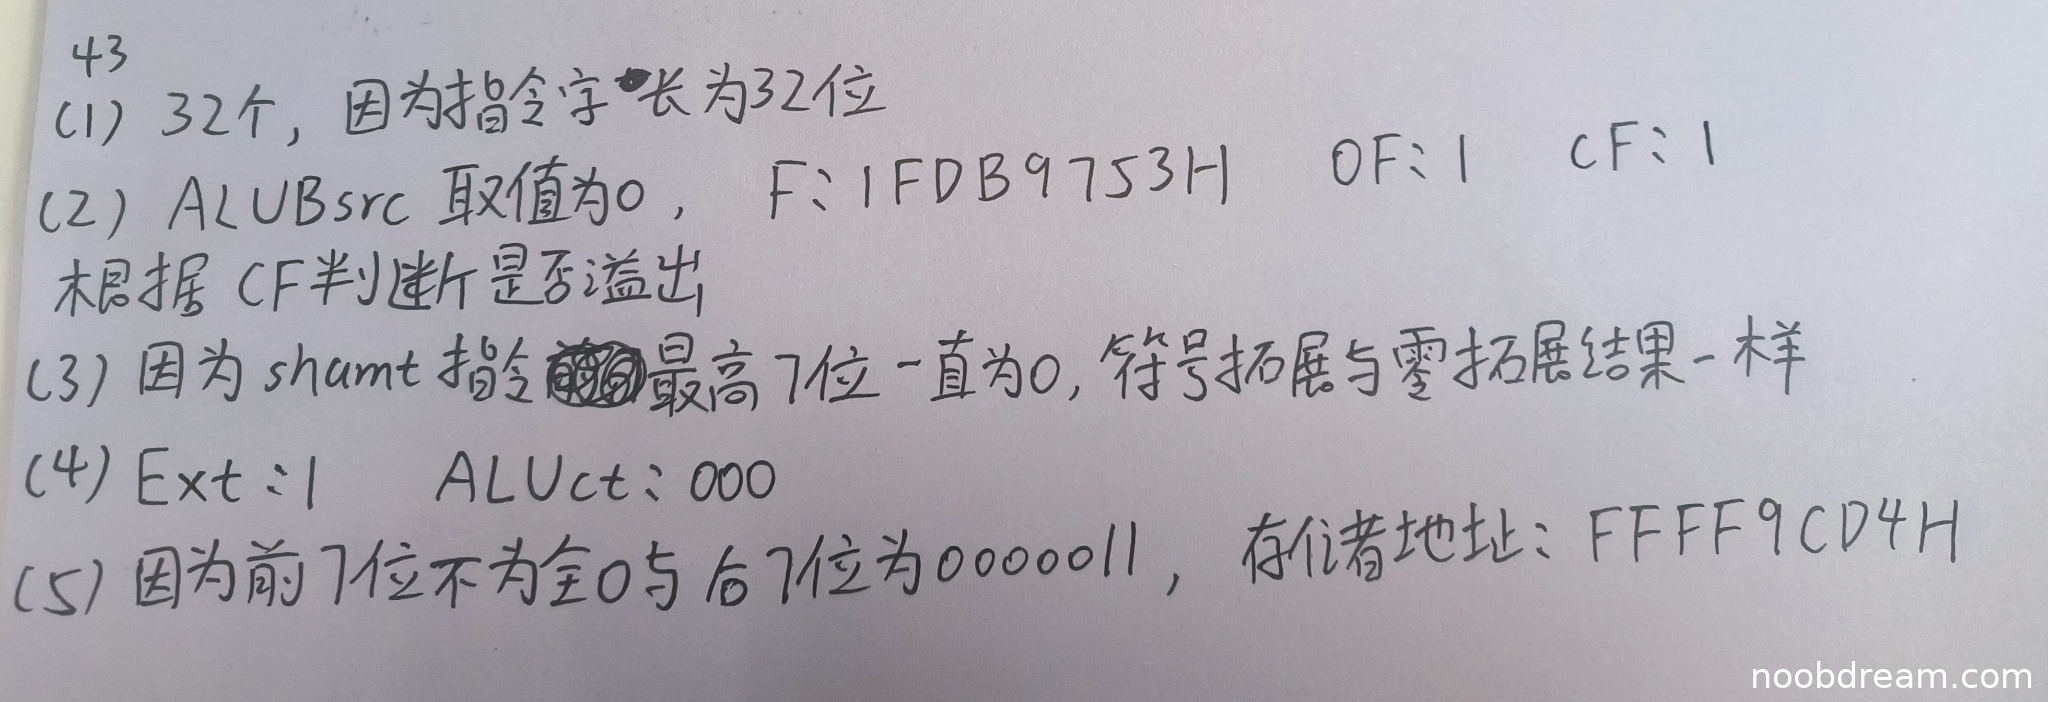 43
(1) 32个, 因为指令字长为32位
(2) ALUBsrc 取值为0, F: 1FDB9753H OF: 1 CF: 1
根据 CF判断是否溢出
(3) 因为 shamt 指令最高7位一直为0, 符号拓展与零拓展结果一样
(4) Ext: 1 ALUct: 000
(5) 因为前7位不为全0与后7位为0000011, 存储者地址: FFFF9CD4H
noobdream.com